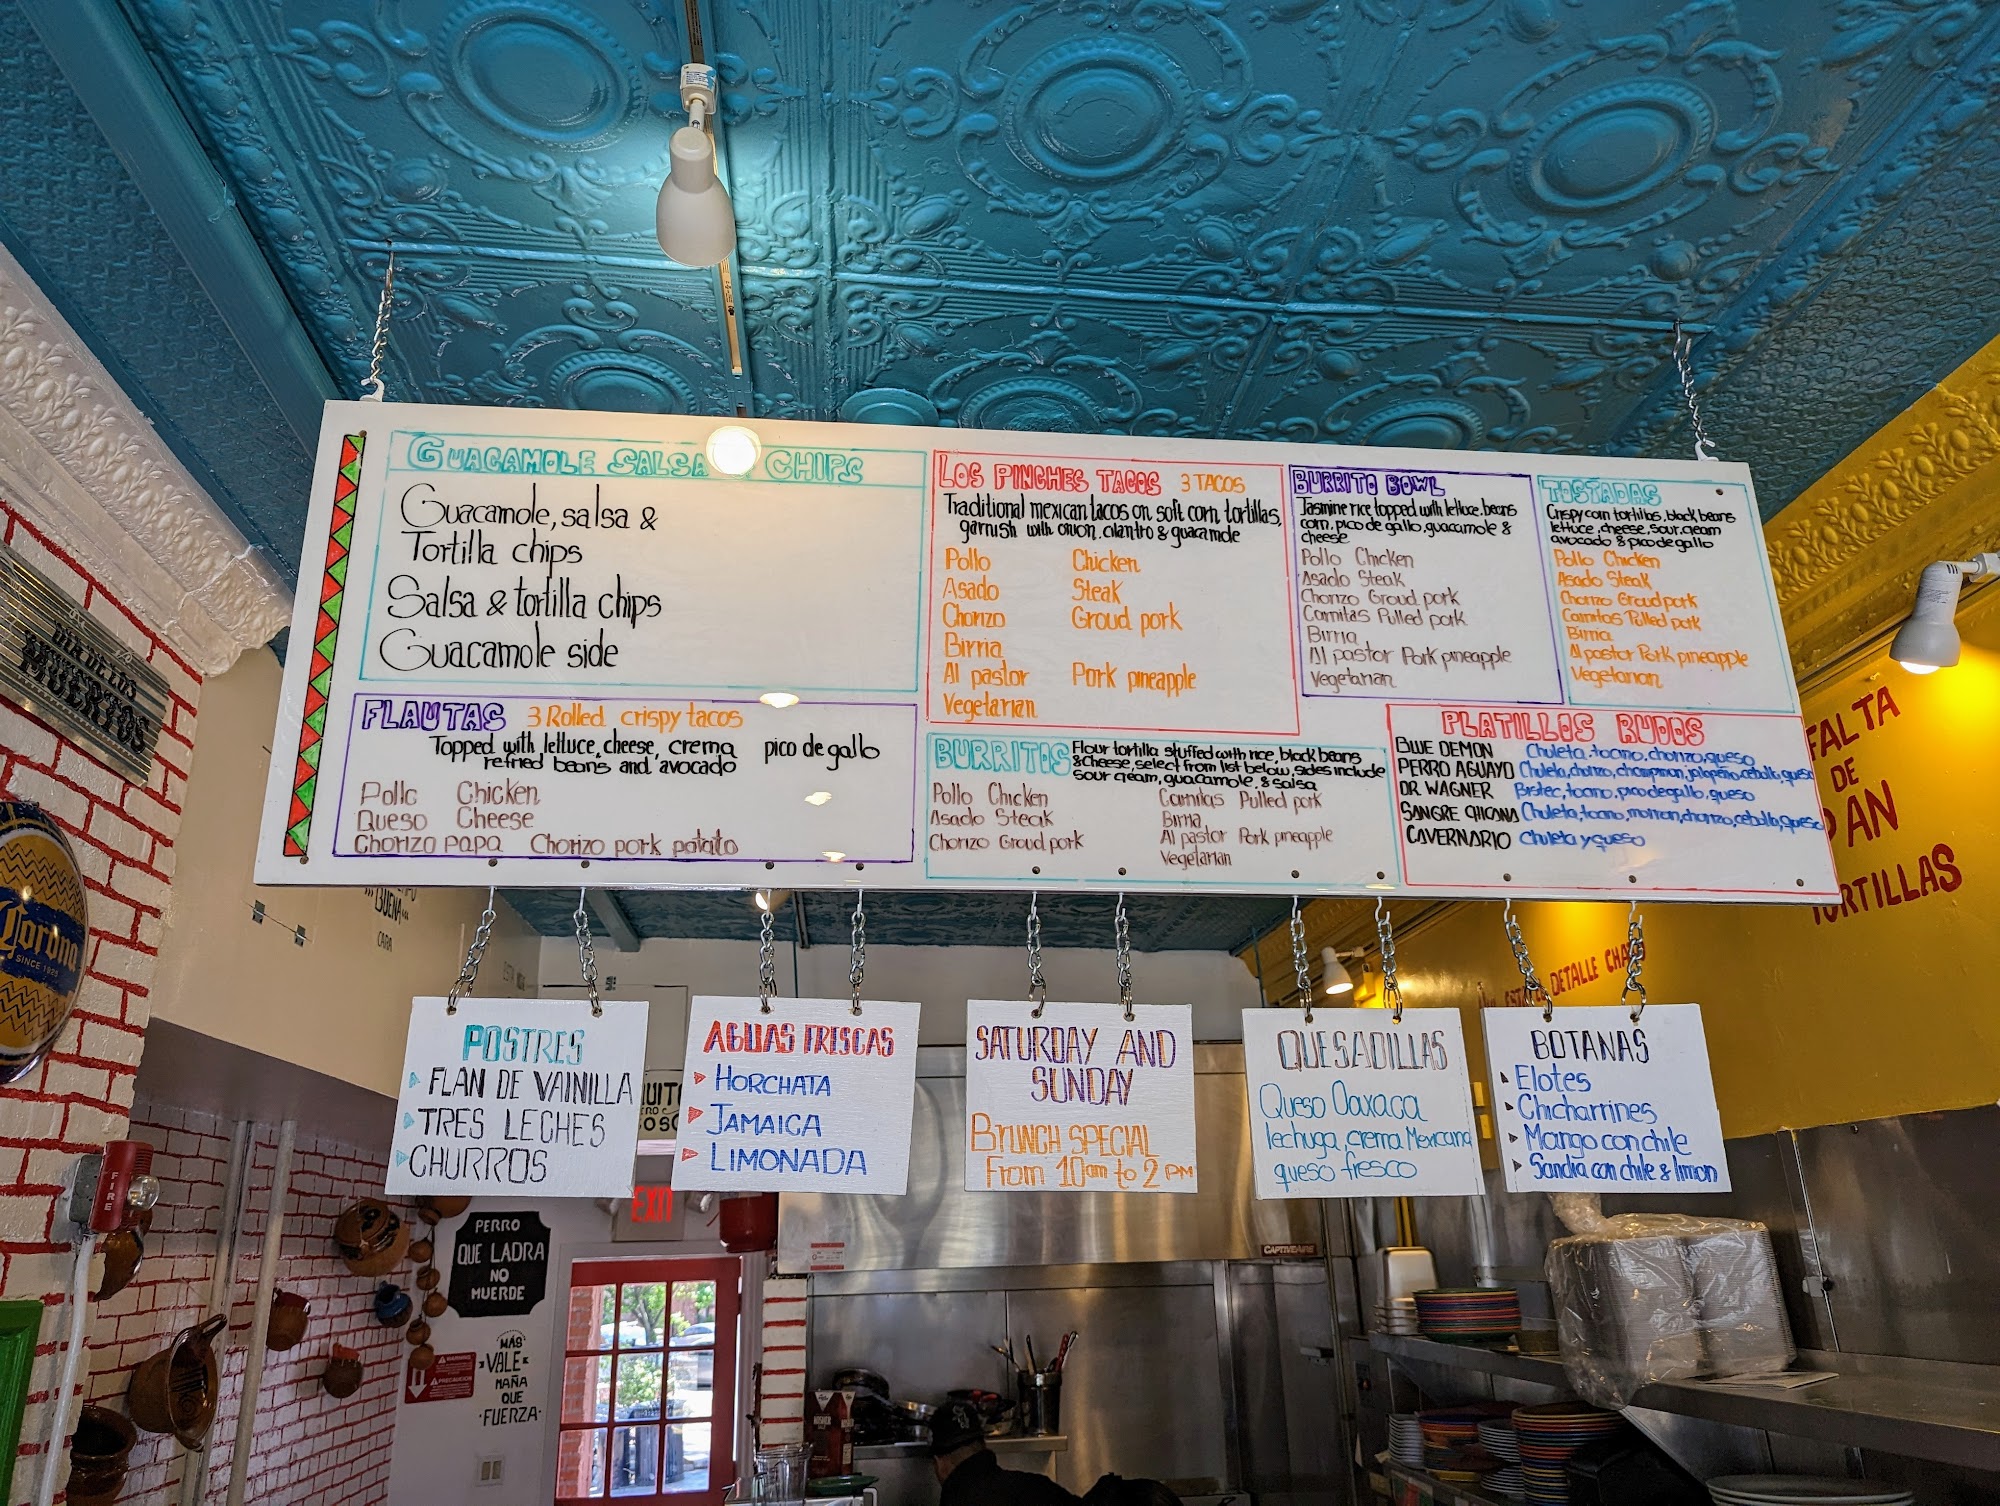 GUACAMOLE SALSA CHIPS
Guacamole, salsa &
Tortilla chips
Salsa & tortilla chips
Guacamole side
FLAUTAS 3 Rolled crispy tacos
Topped with lettuce, cheese, crema pico de gallo
refried beans and avocado
Pollo Chicken
Queso Cheese
Chorizo papa Chorizo pork potato
LOS PINCHES TACOS 3 TACOS
Traditional mexican tacos on soft corn tortillas,
garnish with onion, cilantro & guacamole
Pollo Chicken
Asado Steak
Chorizo Groud pork
Birria
Al pastor Pork pineapple
Vegetarian
BURRITO BOWL
Jasmine rice topped with lettuce, beans
corn, pico de gallo, guacamole &
cheese
Pollo Chicken
Asado Steak
Chorizo Groud pork
Carnitas Pulled pork
Birria
Al pastor Pork pineapple
Vegetarian
TOSTADAS
Crispy corn tortillas, black beans
lettuce, cheese, sour cream
avocado & pico de gallo
Pollo Chicken
Asado Steak
Chorizo Groud pork
Carnitas Pulled pork
Birria
Al pastor Pork pineapple
Vegetarian
BURRITOS Flour tortilla stuffed with rice, black beans
& cheese, select from list below, sides include
sour cream, guacamole, & salsa
Pollo Chicken
Asado Steak
Chorizo Groud pork
Carnitas Pulled pork
Birria
Al pastor Pork pineapple
Vegetarian
PLATILLOS RUDOS
BLUE DEMON Chuleta, tocino, chorizo, queso
PERRO AGUAYO Chuleta, chorizo, champinon, jalapeño, cebolla, queso
DR. WAGNER Bistec, tocino, pico de gallo, queso
SANGRE CHICANA Chuleta, tocino, morron, chorizo, cebolla, queso
CAVERNARIO Chuleta y queso
POSTRES
FLAN DE VAINILLA
TRES LECHES
CHURROS
AGUAS FRISCAS
HORCHATA
JAMAICA
LIMONADA
SATURDAY AND
SUNDAY
BRUNCH SPECIAL
From 10am to 2 PM
QUESADILLAS
Queso Oaxaca
lechuga, crema Mexicana
queso fresco
BOTANAS
Elotes
Chicharrines
Mango con chile
Sandia con chile & limon
DIA DE LOS
MUERTOS
Corona
SINCE 1925
FIRE
BUENA
CARA
EXIT
PERRO
QUE LADRA
NO
MUERDE
MÁS
VALE
MAÑA
QUE
FUERZA
WARNING
PRECAUCION
CAPTIVEAIRE
FALTA
DE
PAN
TORTILLAS
DETALLE